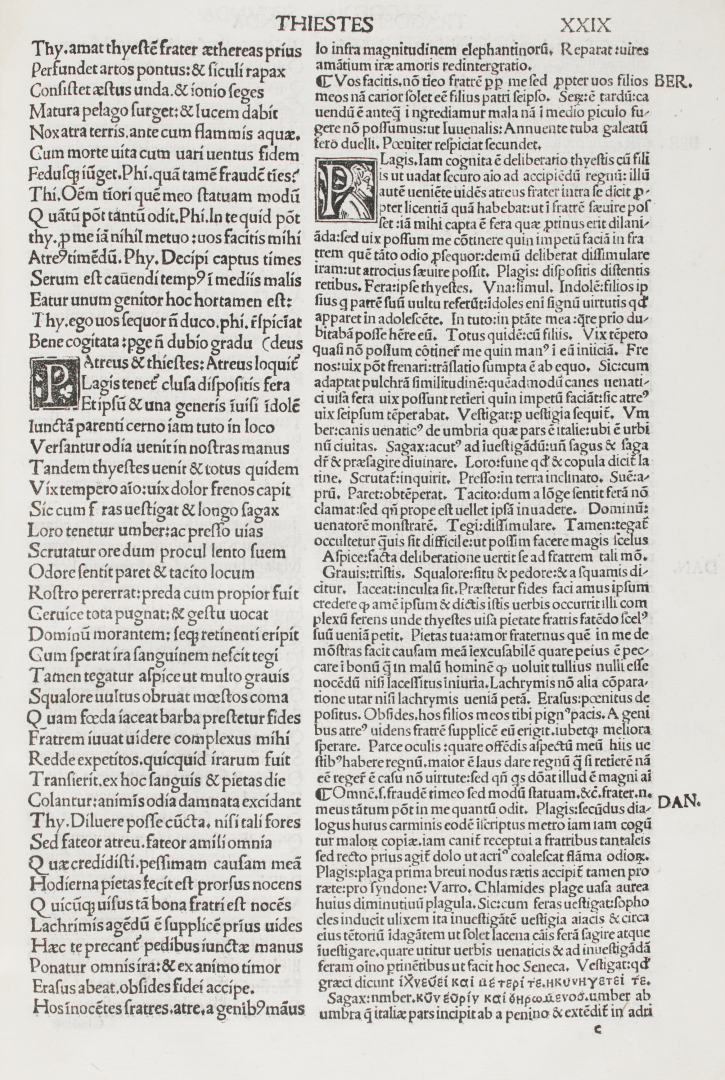 THIESTES
XXIX
Thy. amat thyestẽ frater æthereas prius
Perfundet artos pontus: & siculi rapax
Consistet æstus unda. & ionio seges
Matura pelago surget: & lucem dabit
Nox atra terris. ante cum flammis aquæ.
Cum morte uita cum uari uentus fidem
Fedusq; iũget. Phi. quã tamẽ fraudẽ ties?
Thi. Oẽm tiori quẽ meo statuam modũ
Quãtũ põt tãntũ odit. Phi. In te quid põt
thy. ꝓ me iã nihil metuo: uos facitis mihi
Atreꝰ timẽdũ. Phy. Decipi captus times
Serum est cauẽndi tempꝰ ĩ mediis malis
Eatur unum genitor hoc hortamen est:
Thy. ego uos sequor ñ duco. phi. r̃spiciat
Bene cogitata: pge ñ dubio gradu (deus
PAtreus & thiestes: Atreus loquit᷑
Lagis tenet᷑ clusa dispositis fera
Et ipsũ & una generis iuisi idolẽ
Iunctã parenti cerno iam tuto in loco
Versantur odia uenit in nostras manus
Tandem thyestes uenit & totus quidem
Vix tempero aio: uix dolor frenos capit
Sic cum f ras uestigat & longo sagax
Loro tenetur umber: ac presso uias
Scrutatur ore dum procul lento suem
Odore sentit paret & tacito locum
Rostro pererrat: preda cum propior fuit
Ceruice tota pugnat: & gestu uocat
Dominũ morantem: seq; retinenti eripit
Cum sperat ira sanguinem nescit tegi
Tamen tegatur aspice ut multo grauis
Squalore uultus obruat mœstos coma
Quam fœda iaceat barba prestetur fides
Fratrem iuuat uidere complexus mihi
Redde expetitos. quicquid irarum fuit
Transierit. ex hoc sanguis & pietas die
Colantur: animis odia damnata excidant
Thy. Diluere posse cũcta. nisi tali fores
Sed fateor atreu. fateor amili omnia
Quæ credidisti. pessimam causam meã
Hodierna pietas fecit est prorsus nocens
Quicũq; uisus tã bona fratri est nocẽs
Lachrimis agẽdũ ẽ supplicẽ prius uides
Hæc te precant᷑ pedibus iunctæ manus
Ponatur omnis ira: & ex animo timor
Erasus abeat. obsides fidei accipe.
Hos inocẽtes fratres. atre. a genibꝰ mãus
lo infra magnitudinem elephantinorũ. Reparat: uires
amãtium iræ amoris redintergratio.
¶Vos facitis. nõ tieo fratrẽ ꝓp me sed ꝓpter uos filios BER.
meos nã carior solet eẽ filius patri seipso. Serꝫ: ẽ tardũ: ca
uendũ ẽ anteq̃ ĩ ngrediamur mala nã ĩ medio piculo fu-
gere nõ possumus: ut Iuuenalis: Annuente tuba galeatũ
fero duelli. Pœniter respiciat secundet.
PLagis. Iam cognita ẽ deliberatio thyestis cũ fili
is ut uadat securo aio ad accipiẽdũ regnũ: illũ
autẽ ueniẽte uidẽs atreus frater intra se dicit ꝓ-
pter licentiã quã habebat: ut ĩ fratrẽ sæuire pos
set: iã mihi capta ẽ fera quæ ꝓtinus erit dilani-
ãda: sed uix possum me cõtinere quin impetũ faciã in fra
trem quẽ tãto odio ꝓsequor: demũ deliberat dissimulare
iram: ut atrocius sæuire possit. Plagis: dispositis distentis
retibus. Fera: ipse thyestes. Vna: simul. Indolẽ: filios ip
sius q patrẽ suũ uultu referũt: idoles eni signũ uirtutis qd̃
apparet in adolescẽte. In tuto: in ptãte mea: q̃re prio du-
bitabã posse hẽre eũ. Totus quidẽ: cũ filiis. Vix tẽpero
quasi nõ possum cõtiner᷑ me quin manꝰ ĩ eũ iniiciã. Fre
nos: uix põt frenari: trãslatio sumpta ẽ ab equo. Sic: cum
adaptat pulchrã similitudinẽ: quẽadmodũ canes uenati-
ci uisa fera uix possunt retieri quin impetũ faciãt: sic atreꝰ
uix seipsum tẽperabat. Vestigat: p uestigia sequit᷑. Vm
ber: canis uenaticꝰ de umbria quæ pars ẽ italie: ubi ẽ urbi
nũ ciuitas. Sagax: acutꝰ ad iuestigãdũ: uñ sagus & saga
dr̃ & præsagire diuinare. Loro: fune qd̃ & copula dicit᷑ la
tine. Scrutat᷑: inquirit. Presso: in terra inclinato. Suẽ: a-
prũ. Paret: obtẽperat. Tacito: dum a lõge sentit ferã nõ
clamat: sed qñ prope est uellet ipsã inuadere. Dominũ:
uenatorẽ monstrarẽ. Tegi: dissimulare. Tamen: tegat᷑
occultetur q̃uis sit difficile: ut possim facere magis scelus
Aspice: facta deliberatione uertit se ad fratrem tali mõ.
Grauis: tristis. Squalore: situ & pedore: & a squamis di-
citur. Iaceat: inculta sit. Præstetur fides faci amus ipsum
credere ꝙ amẽ ipsum & dictis istis uerbis occurrit illi com
plexũ ferens unde thyestes uisa pietate fratris fatẽdo scelꝰ
suũ ueniã petit. Pietas tua: amor fraternus quẽ in me de
mõstras facit causam meã iexcusabilẽ quare peius ẽ pec-
care ĩ bonũ q̃ in malũ hominẽ ꝙ uoluit tullius nulli esse
nocẽdũ nisi lacessitus iniuria. Lachrymis nõ alia cõpara-
tione utar nisi lachrymis ueniã petã. Erasus: pœnitus de
positus. Obsides. hos filios meos tibi pignꝰ pacis. A geni
bus atreꝰ uidens fratrẽ supplicẽ eũ erigit. iubetqꝫ meliora
sperare. Parce oculis: quare offẽdis aspectũ meũ hiis ue
stibꝰ habere regnũ. maior ẽ laus dare regnũ q̃ si retierẽ nã
eẽ regẽ ẽ casu nõ uirtute: sed qñ qs dõat illud ẽ magni ai
¶Omnẽ. s. fraudẽ timeo sed modũ statuam. &c. frater. n. DAN.
meus tãtum põt in me quantũ odit. Plagis: secũdus dia-
logus huius carminis eodẽ iscriptus metro iam iam cogũ
tur malorꝫ copiæ. iam canit᷑ receptui a fratribus tantaleis
sed recto prius agit᷑ dolo ut acriꝰ coalescat flãma odiorꝫ.
Plagis: plaga prima breui nodus rætis accipit᷑ tamen pro
ræte: pro syndone: Varro. Chlamides plage uasa aurea
huius diminutiuũ plagula. Sic: cum feras uestigat: sopho
cles inducit ulixem ita inuestigãtẽ uestigia aiacis & circa
eius tẽtoriũ idagãtem ut solet lacena cãis ferã sagire atque
iuestigare. quare utitur uerbis uenaticis & ad inuestigãdã
feram oĩno ptinẽtibus ut facit hoc Seneca. Vestigat: qd̃
græci dicunt ἰχνεύει καὶ μετερὶ τε. ηκυνηγετεῖ τε.
Sagax: nmber. κῦνεὑρὶν καὶ θηρωμενοσ. umber ab
umbra q̃ italiæ pars incipit ab a penino & extẽdit᷑ in adri
c